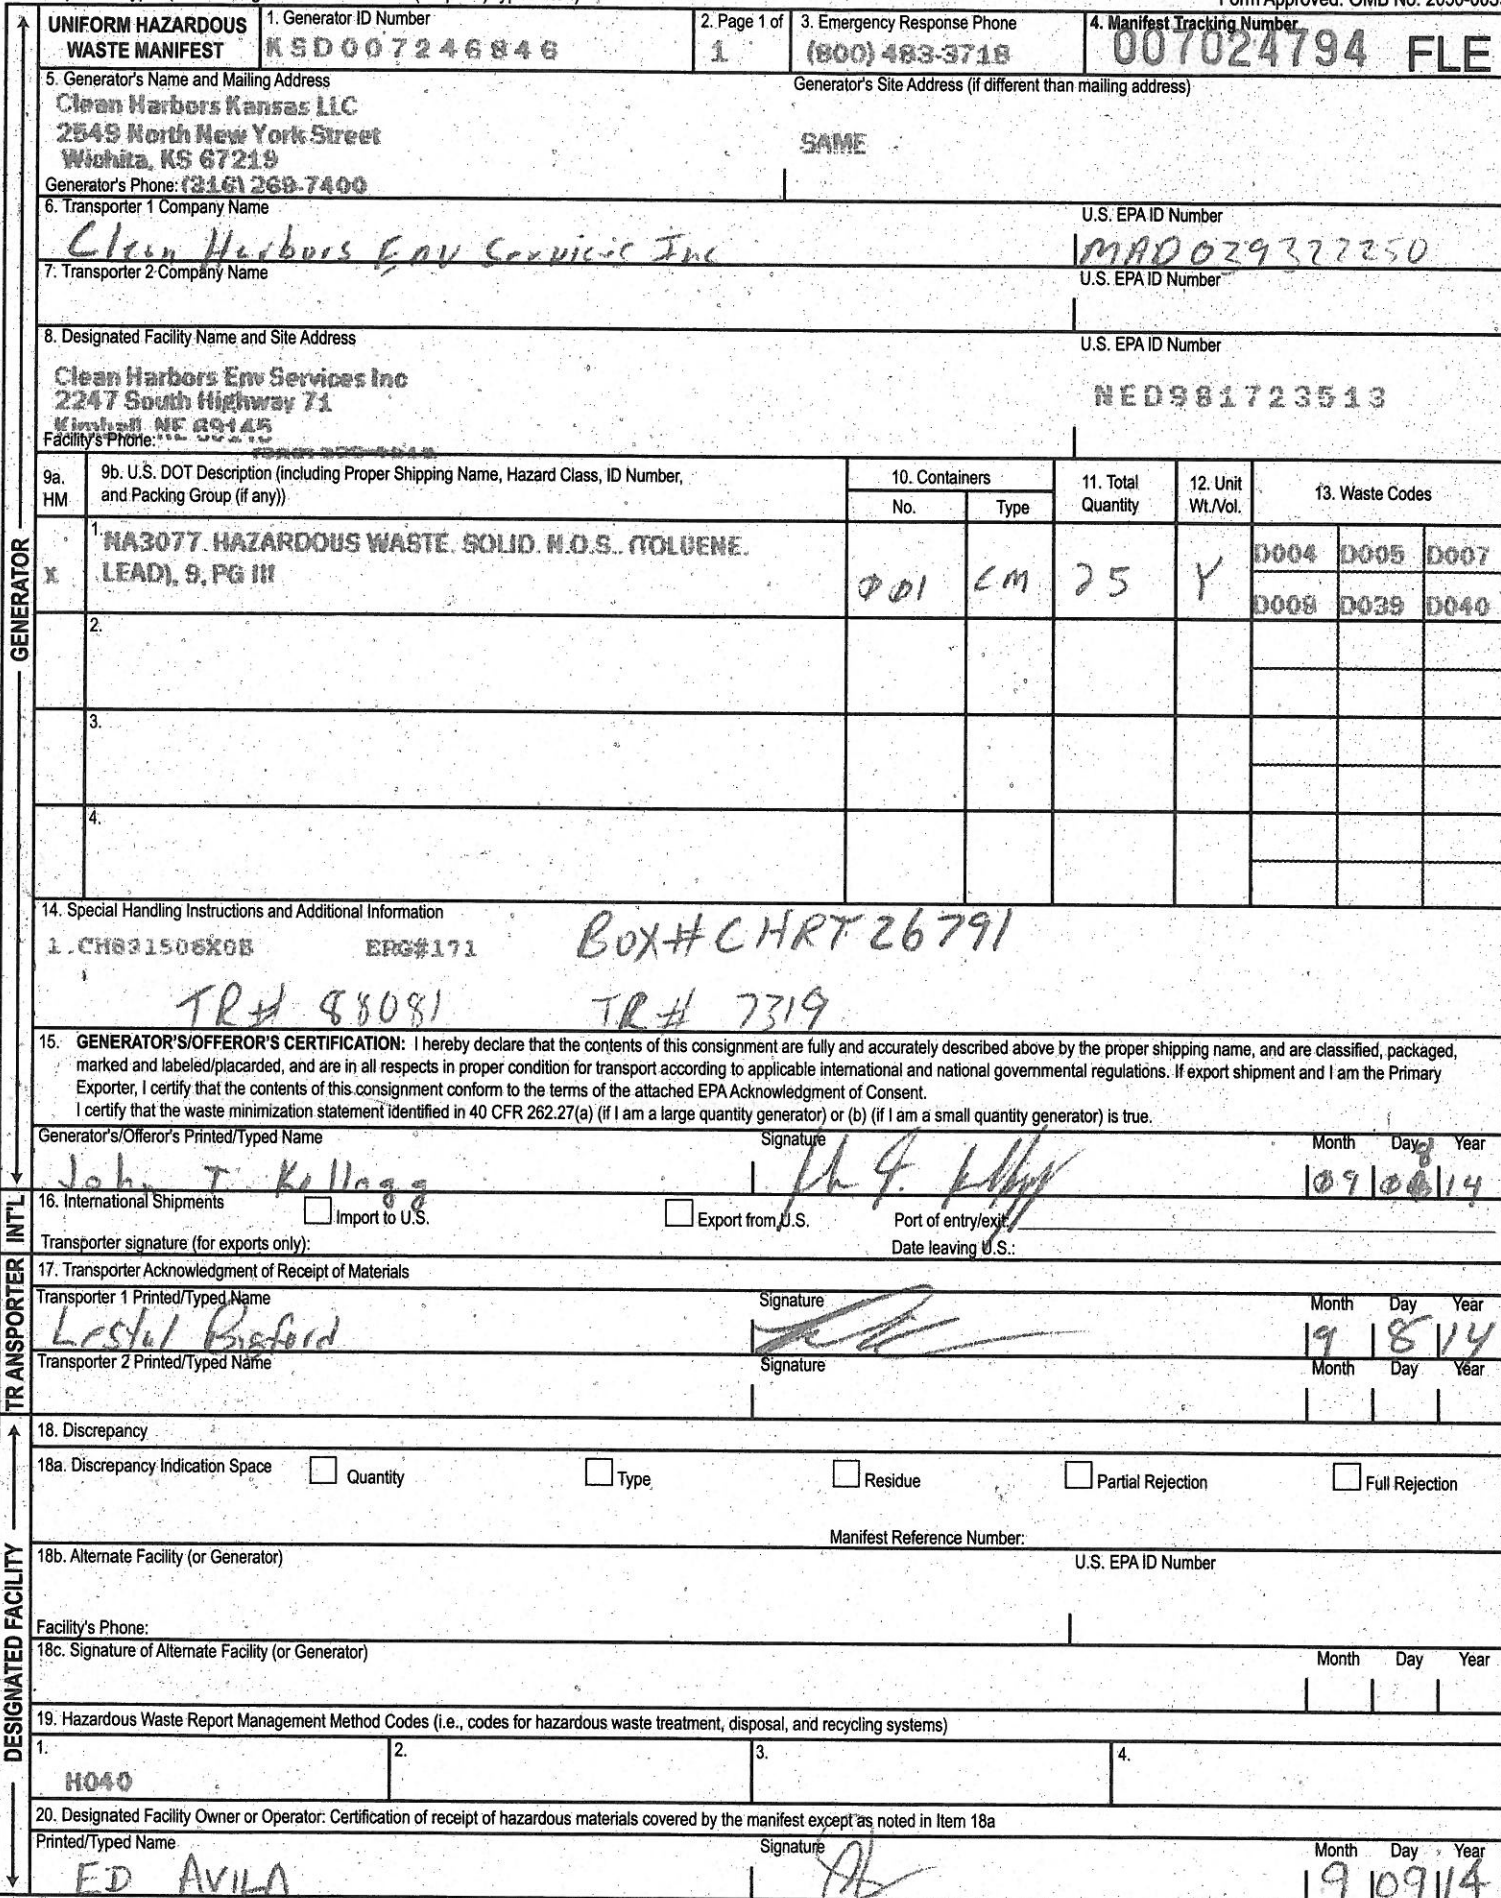 UNIFORM HAZARDOUS WASTE MANIFEST
1. Generator ID Number
KSD007246846
2. Page 1 of
1
3. Emergency Response Phone
(800) 483-3718
4. Manifest Tracking Number
007024794 FLE
5. Generator's Name and Mailing Address
Generator's Site Address (if different than mailing address)
Clean Harbors Kansas LLC
2549 North New York Street
SAME
Wichita, KS 67219
Generator's Phone: (316) 269-7400
6. Transporter 1 Company Name
U.S. EPA ID Number
Clean Harbors Env Services Inc
MAD039322250
7. Transporter 2 Company Name
U.S. EPA ID Number
8. Designated Facility Name and Site Address
U.S. EPA ID Number
Clean Harbors Env Services Inc
2247 South Highway 71
NED981723513
Kimball, NE 69145
Facility's Phone:
9a. HM
9b. U.S. DOT Description (including Proper Shipping Name, Hazard Class, ID Number,
and Packing Group (if any))
10. Containers
No.
Type
11. Total Quantity
12. Unit Wt./Vol.
13. Waste Codes
1.
NA3077, HAZARDOUS WASTE, SOLID, N.O.S., (TOLUENE,
X
LEAD), 9, PG III
001
CM
25
Y
D004 D005 D007
D008 D039 D040
2.
3.
4.
14. Special Handling Instructions and Additional Information
1.CH831506X0B
ERG#171
BOX# CHRT 26791
TR# 88081
TR# 7319
15. GENERATOR'S/OFFEROR'S CERTIFICATION: I hereby declare that the contents of this consignment are fully and accurately described above by the proper shipping name, and are classified, packaged,
marked and labeled/placarded, and are in all respects in proper condition for transport according to applicable international and national governmental regulations. If export shipment and I am the Primary
Exporter, I certify that the contents of this consignment conform to the terms of the attached EPA Acknowledgment of Consent.
I certify that the waste minimization statement identified in 40 CFR 262.27(a) (if I am a large quantity generator) or (b) (if I am a small quantity generator) is true.
Generator's/Offeror's Printed/Typed Name
Signature
Month Day Year
John T Kellogg
09 08 14
16. International Shipments
Import to U.S.
Export from U.S.
Port of entry/exit:
Transporter signature (for exports only):
Date leaving U.S.:
17. Transporter Acknowledgment of Receipt of Materials
Transporter 1 Printed/Typed Name
Signature
Month Day Year
9 8 14
Transporter 2 Printed/Typed Name
Signature
Month Day Year
18. Discrepancy
18a. Discrepancy Indication Space
Quantity
Type
Residue
Partial Rejection
Full Rejection
Manifest Reference Number:
18b. Alternate Facility (or Generator)
U.S. EPA ID Number
Facility's Phone:
18c. Signature of Alternate Facility (or Generator)
Month Day Year
19. Hazardous Waste Report Management Method Codes (i.e., codes for hazardous waste treatment, disposal, and recycling systems)
1.
2.
3.
4.
H040
20. Designated Facility Owner or Operator: Certification of receipt of hazardous materials covered by the manifest except as noted in Item 18a
Printed/Typed Name
Signature
Month Day Year
ED AVILA
9 09 14
GENERATOR
INT'L
TRANSPORTER
DESIGNATED FACILITY